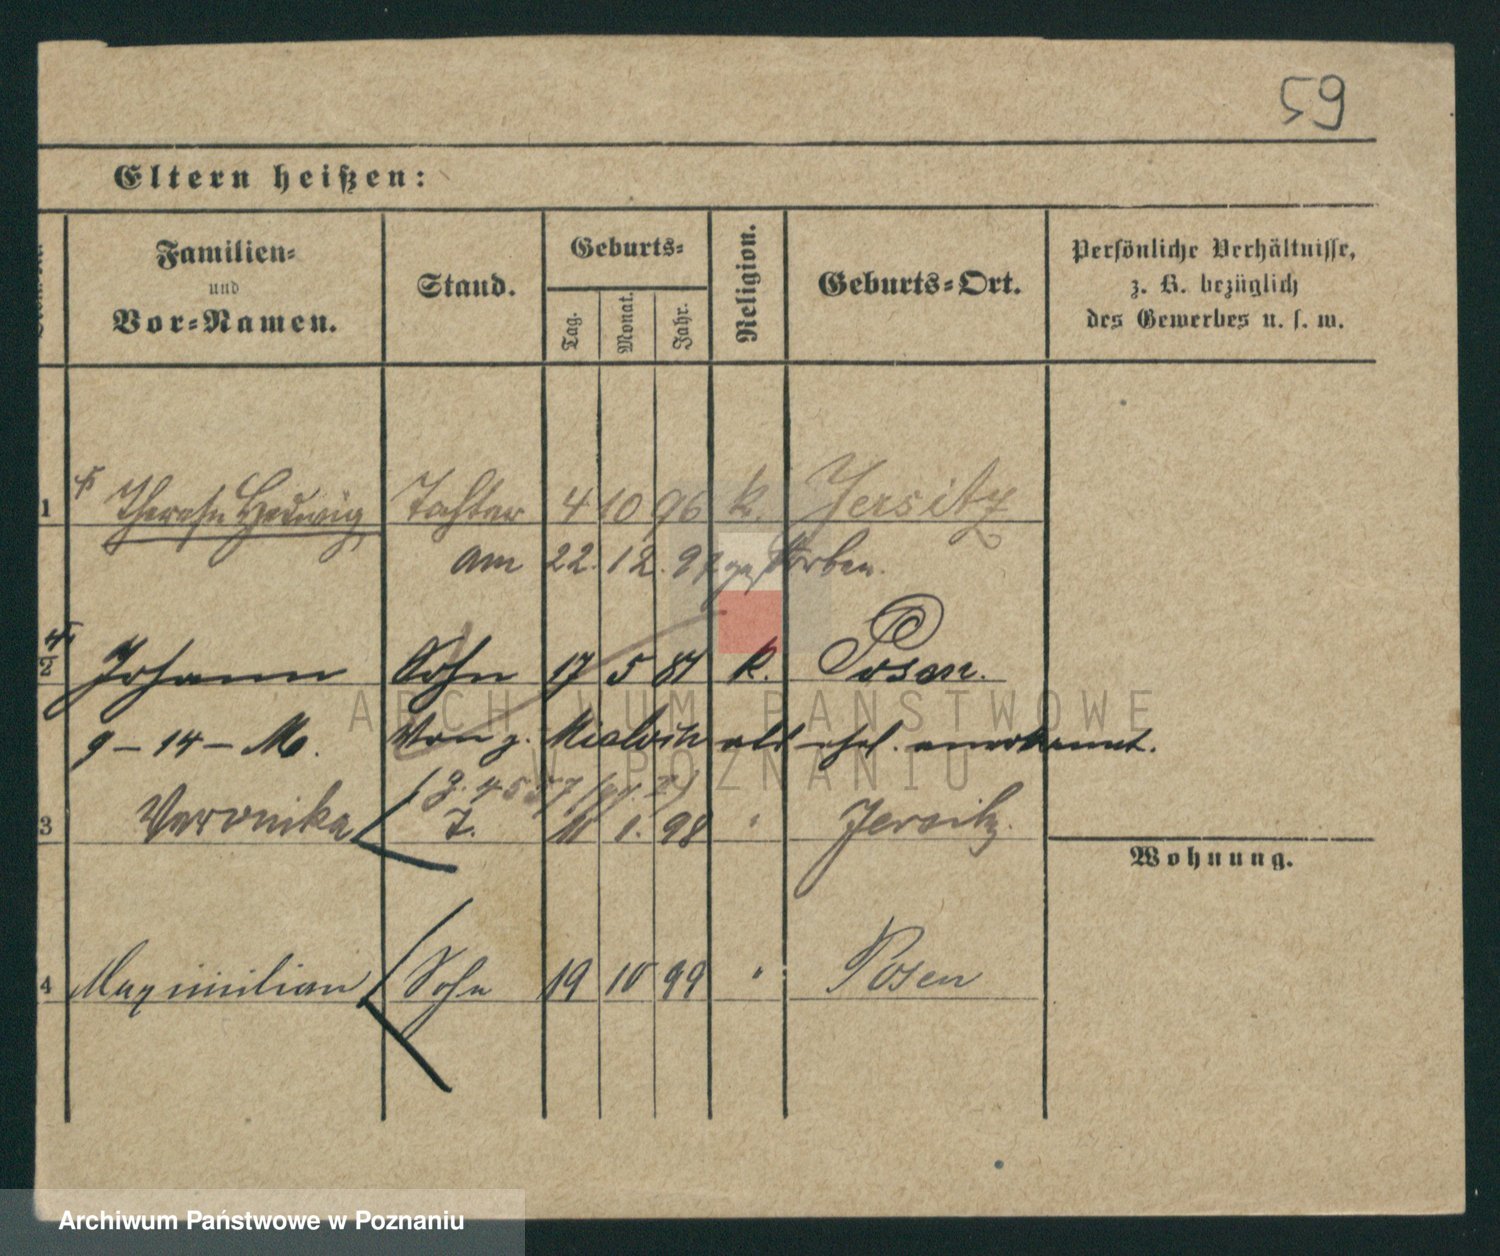 59
Eltern heißen:
Familien-
und
Vor-Namen.
Stand.
Geburts-
Tag.
Monat.
Jahr.
Religion.
Geburts-Ort.
Persönliche Verhältnisse,
z. B. bezüglich
des Gewerbes u. s. w.
1 Therese Hedwig Tochter 4 10 96 k. Jersitz
am 22. 12. 97 gestorben.
2 Johann Sohn 17 5 81 k. Posen.
9 – 14 – M. Von z. als ehel. anerkannt.
3 Veronika T. 11 1. 98 " Jersitz.
Wohnung.
4 Maximilian Sohn 19 10 99 " Posen
ARCHIWUM PAŃSTWOWE
W POZNANIU
Archiwum Państwowe w Poznaniu